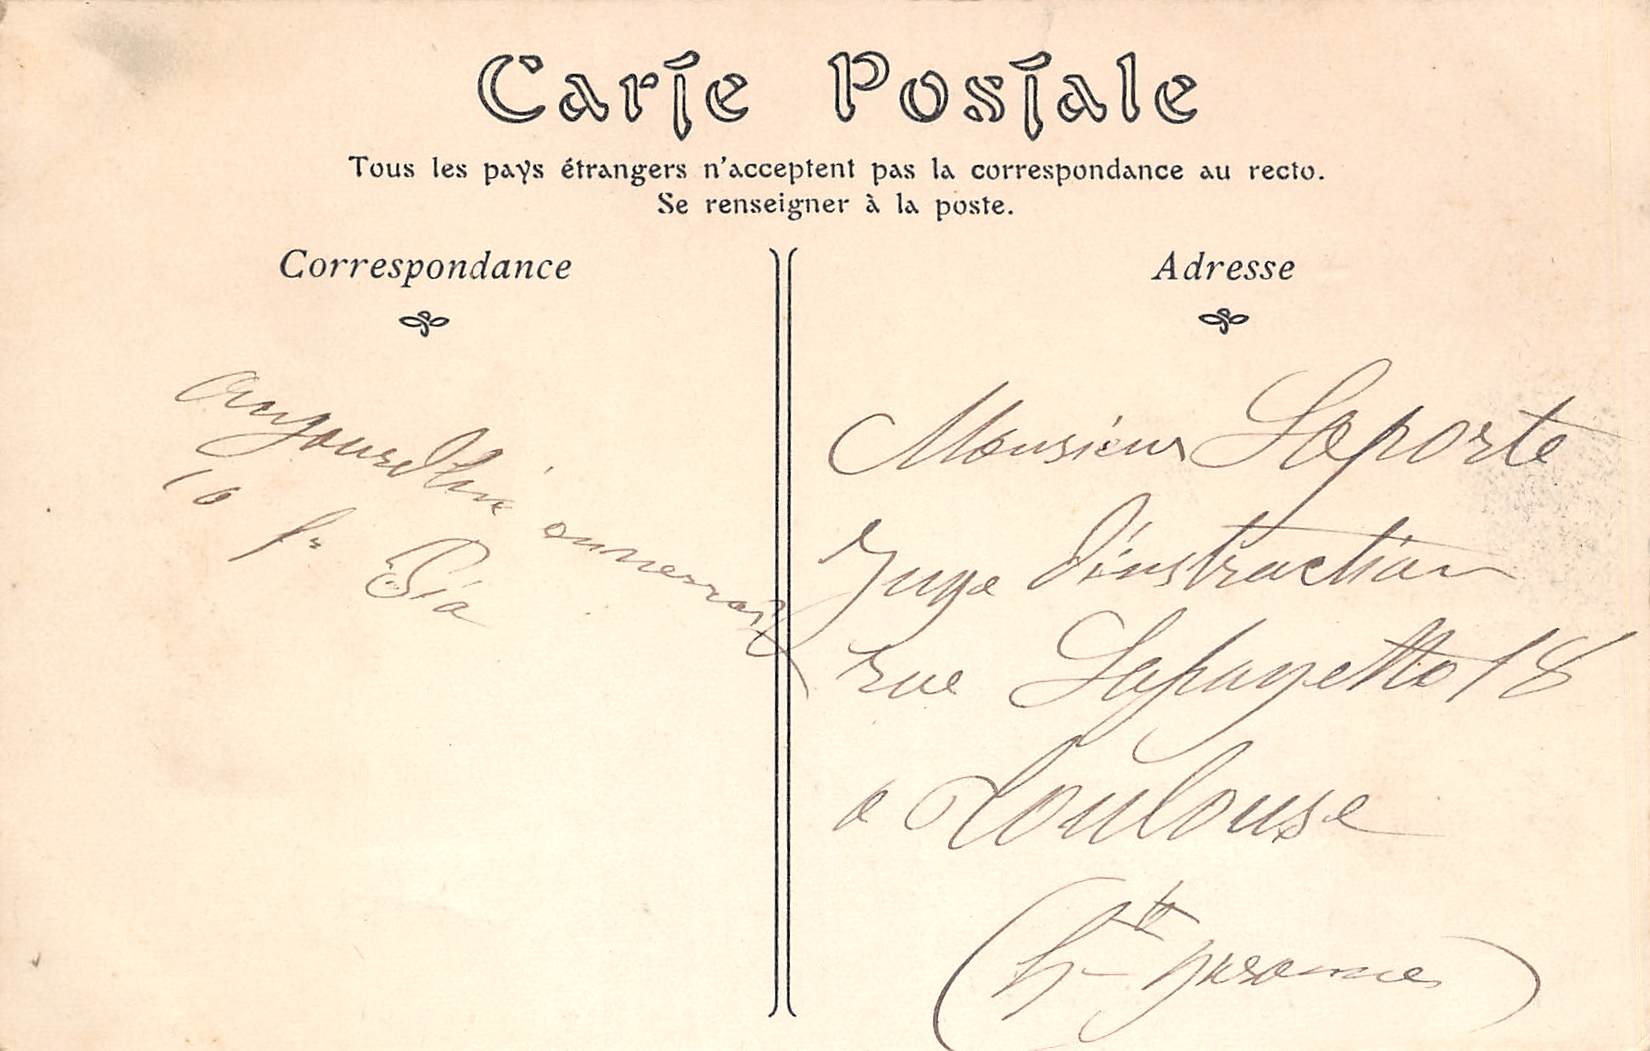 Carte Postale
Tous les pays étrangers n'acceptent pas la correspondance au recto.
Se renseigner à la poste.
Correspondance
Adresse
aujourdhui
10 fs Pia
Monsieur Laporte
Juge d'instruction
rue Lafayette 18
a Toulouse
(Hte Garonne)